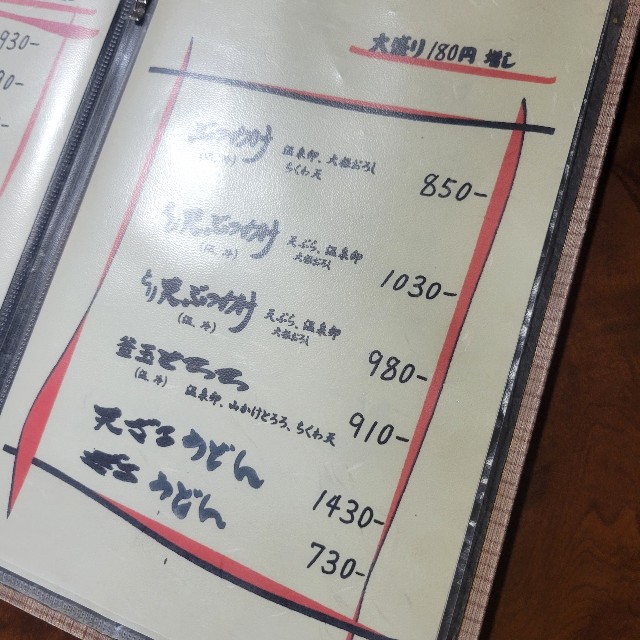 930-
大盛り180円増し
ぶっかけ 温泉卵、大根おろし
ちくわ天
850-
天ぷら、温泉卵
大根おろし
1030-
天ぷら、温泉卵
大根おろし
980-
釜玉とろろ
温泉卵、山かけとろろ、ちくわ天
910-
天ざるうどん 1430-
うどん 730-